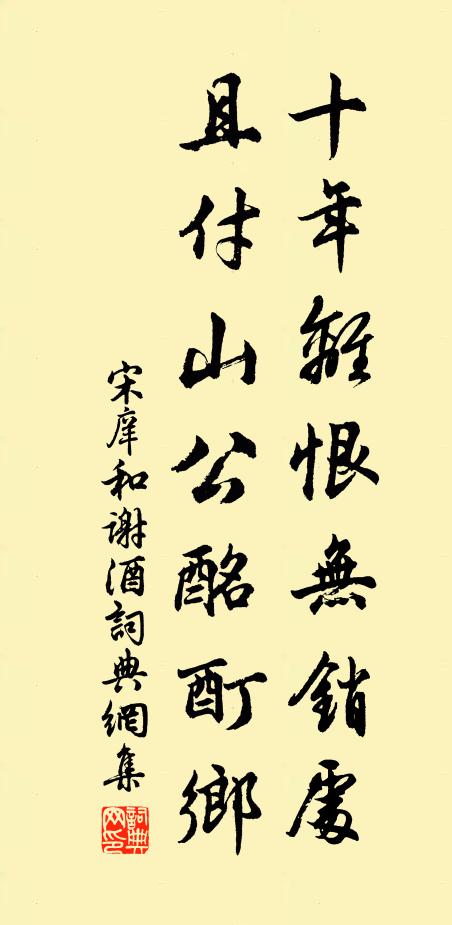 十年離恨無銷處
且付山公酩酊鄉
宋庠和谢酒詞典網集
詞典
网印